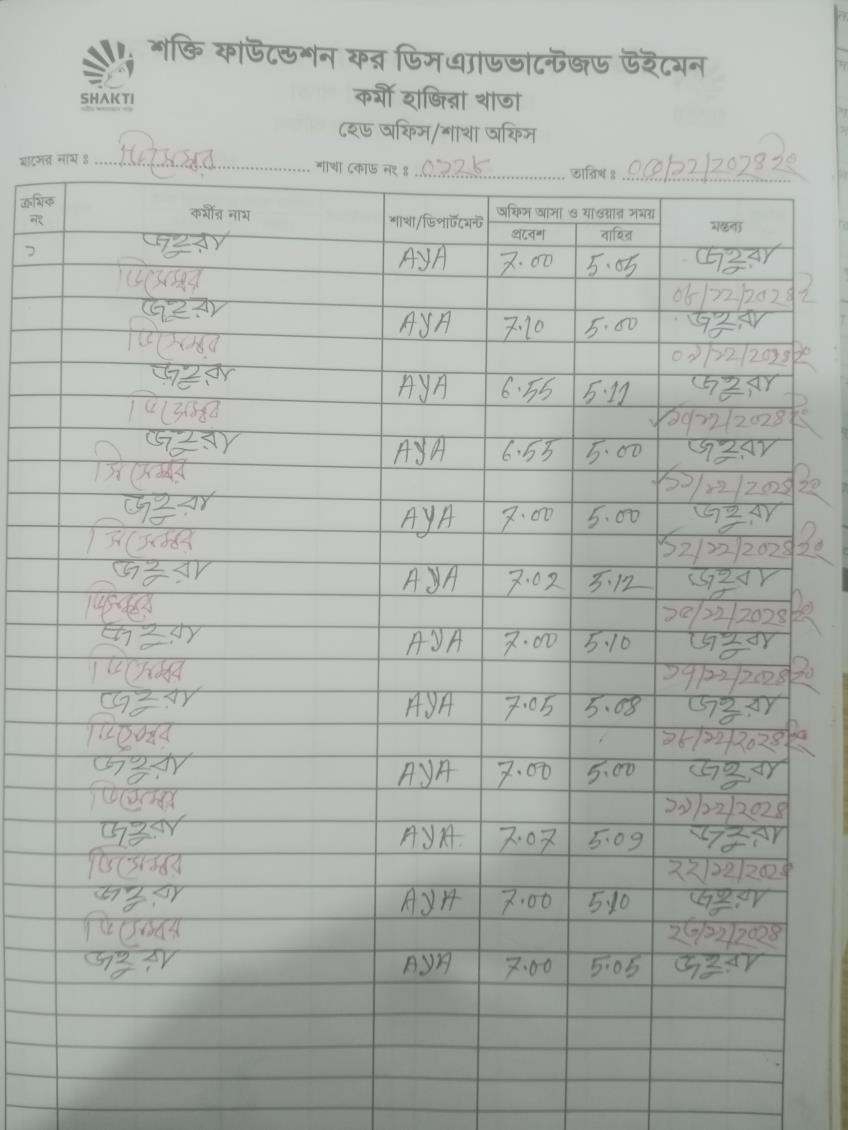 শক্তি ফাউন্ডেশন ফর ডিসএ্যাডভান্টেজড উইমেন
SHAKTI
কর্মী হাজিরা খাতা
হেড অফিস/শাখা অফিস
মাসের নাম : ডিসেম্বর শাখা কোড নং : ০১২৮ তারিখ : /১২/২০২৪ ইং
ক্রমিক নং কর্মীর নাম শাখা/ডিপার্টমেন্ট অফিস আসা ও যাওয়ার সময় মন্তব্য
প্রবেশ বাহির
১ জহুরা AYA 7.00 5.05 জহুরা
ডিসেম্বর ০৮/১২/২০২৪ ইং
জহুরা AYA 7.10 5.00 জহুরা
ডিসেম্বর ০৯/১২/২০২৪ ইং
জহুরা AYA 6.55 5.11 জহুরা
ডিসেম্বর ১০/১২/২০২৪ ইং
জহুরা AYA 6.55 5.00 জহুরা
ডিসেম্বর ১১/১২/২০২৪ ইং
জহুরা AYA 7.00 5.00 জহুরা
ডিসেম্বর ১২/১২/২০২৪ ইং
জহুরা AYA 7.02 5.12 জহুরা
ডিসেম্বর /১২/২০২৪ ইং
জহুরা AYA 7.00 5.10 জহুরা
ডিসেম্বর ১৭/১২/২০২৪ ইং
জহুরা AYA 7.05 5.08 জহুরা
ডিসেম্বর ১৮/১২/২০২৪ ইং
জহুরা AYA 7.00 5.00 জহুরা
ডিসেম্বর ১৯/১২/২০২৪
জহুরা AYA 7.07 5.09 জহুরা
ডিসেম্বর ২২/১২/২০২৪
জহুরা AYA 7.00 5.10 জহুরা
ডিসেম্বর ২৩/১২/২০২৪
জহুরা AYA 7.00 5.05 জহুরা